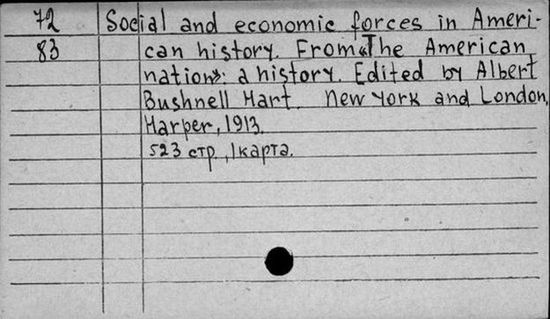 72 Social and economic forces in Ameri-
83 can history. From "The American
nation": a history. Edited by Albert
Bushnell Hart. New York and London,
Harper, 1913.
523 стр., 1 карта.